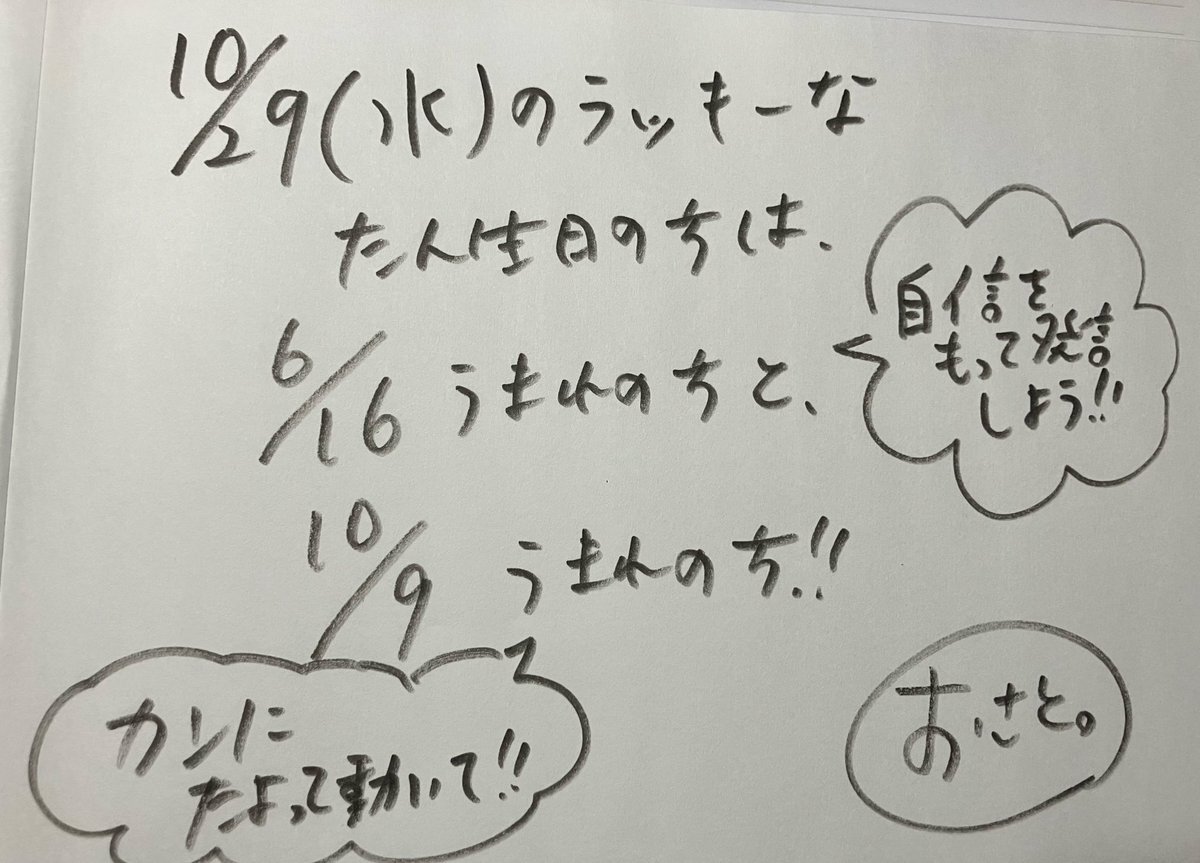 10/29(水)のラッキーな
たん生日の方は、
6/16 うまれの方と、
自信を
もって発信
しよう!!
10/9 うまれの方!!
カンに
たよって動いて!!
おさと。